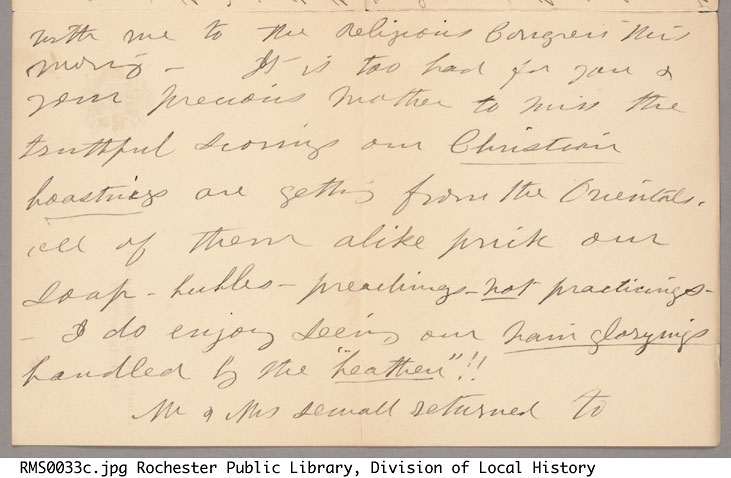 with me to the Religious Congress this
morning - It is too bad for you &
your precious mother to miss the
truthful scorings our Christian
boastings are getting from the Orientals.
all of them alike prick our
soap-bubbles - preachings - not practicings -
- I do enjoy seeing our vain gloryings
handled by the "heathen"!!
Mr & Mrs Sewall returned to
RMS0033c.jpg Rochester Public Library, Division of Local History